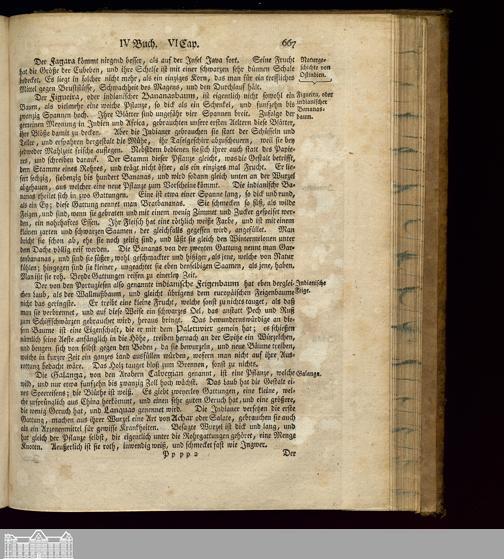 IV Buch. VI Cap. 667
Der Fagara kömmt nirgend besser, als auf der Insel Java fort. Seine Frucht
hat die Größe der Cubeben, und ihre Schelfe ist mit einer schwarzen sehr dünnen Schale
bedecket. Es liegt in solcher nicht mehr, als ein einziges Korn, das man für ein treffliches
Mittel gegen Brustflüsse, Schwachheit des Magens, und den Durchlauf hält.
Naturge-
schichte von
Ostindien.
Der Figueira, oder indianischer Bananasbaum, ist eigentlich nicht sowohl ein
Baum, als vielmehr eine weiche Pflanze, so dick als ein Schenkel, und funfzehn bis
zwanzig Spannen hoch. Ihre Blätter sind ungefähr vier Spannen breit. Zufolge der
gemeinen Meynung in Indien und Africa, gebrauchten unsere ersten Aeltern diese Blätter,
ihre Blöße damit zu decken. Aber die Indianer gebrauchen sie statt der Schüsseln und
Teller, und ersparen dergestalt die Mühe, ihr Tafelgeschirr abzuscheuern, weil sie bey
jedweder Mahlzeit frische auflegen. Nebstdem bedienen sie sich ihrer auch statt des Papie-
res, und schreiben darauf. Der Stamm dieser Pflanze gleicht, was die Gestalt betrifft,
dem Stamme eines Rohres, und trägt nicht öfter, als ein einziges mal Frucht. Er lie-
fert sechzig, siebenzig bis hundert Bananas, und wird sodann gleich unten an der Wurzel
abgehauen, aus welcher eine neue Pflanze zum Vorscheine kömmt. Die indianische Ba-
nanas theilet sich in zwo Gattungen. Eine ist etwa einer Spanne lang, so dick und rund,
als ein Ey; diese Gattung nennet man Bratbananas. Sie schmecken so süß, als wilde
Feigen, und sind, wenn sie gebraten und mit einem wenig Zimmet und Zucker gespeiset wer-
den, ein nahrhaftes Essen. Ihr Fleisch hat eine röthlich weiße Farbe, und ist mit einem
kleinen zarten und schwarzen Saamen, der gleichfalls gegessen wird, angefüllet. Man
bricht sie schon ab, ehe sie noch zeitig sind, und läßt sie gleich den Winterhelenen unter
dem Dache völlig reif werden. Die Bananas von der zweyten Gattung nennt man Gar-
tenbananas, und sind sie süßer, wohl geschmackter und hitziger, als jene, welche von Natur
kühlen; hingegen sind sie kleiner, ungeachtet sie eben denselbigen Saamen, als jene, haben.
Man ißt sie roh. Beyde Gattungen reifen zu einerley Zeit.
Figueira, oder
indianischer
Bananas-
baum.
Der von den Portugiesen also genannte indianische Feigenbaum hat eben derglei-
chen Laub, als der Wallnußbaum, und gleicht übrigens dem europäischen Feigenbaume
nicht das geringste. Er treibt eine kleine Frucht, welche sonst zu nichts tauget, als daß
man sie verbrennet, und auf diese Weise ein schwarzes Oel, das anstatt Pech und Ruß
zum Schiffschwärzen gebrauchet wird, heraus bringt. Das bewundernswürdige an die-
sem Baume ist eine Eigenschaft, die er mit dem Paletuvier gemein hat; es schießen
nämlich seine Aeste anfänglich in die Höhe, treiben hernach an der Spitze ein Würzelchen,
und beugen sich von selbst gegen den Boden, da sie bewurzeln, und neue Bäume treiben,
welche in kurzer Zeit ein ganzes Land ausfüllen würden, wofern man nicht auf ihre Aus-
rottung bedacht wäre. Das Holz tauget bloß zum Brennen, sonst zu nichts.
Indianische
Feige.
Die Galanga, von den Arabern Calvegian genannt, ist eine Pflanze, welche
wild, und nur etwa funfzehn bis zwanzig Zoll hoch wächst. Das Laub hat die Gestalt ei-
nes Speereisens; die Blüthe ist weiß. Es giebt zweyerley Gattungen, eine kleine, wel-
che ursprünglich aus China herkommt, und einen sehr guten Geruch hat, und eine größere,
die wenig Geruch hat, und Lanquas genennet wird. Die Indianer versetzen die erste
Gattung, machen aus ihrer Wurzel eine Art von Achar oder Salate, gebrauchen sie auch
als ein Arzeneymittel für gewisse Krankheiten. Besagte Wurzel ist dick und lang, und
hat gleich der Pflanze selbst, die eigentlich unter die Rohrgattungen gehöret, eine Menge
Knoten. Aeußerlich ist sie roth, inwendig weiß, und schmecket fast wie Ingwer.
Galanga.
Pppp 2 Der